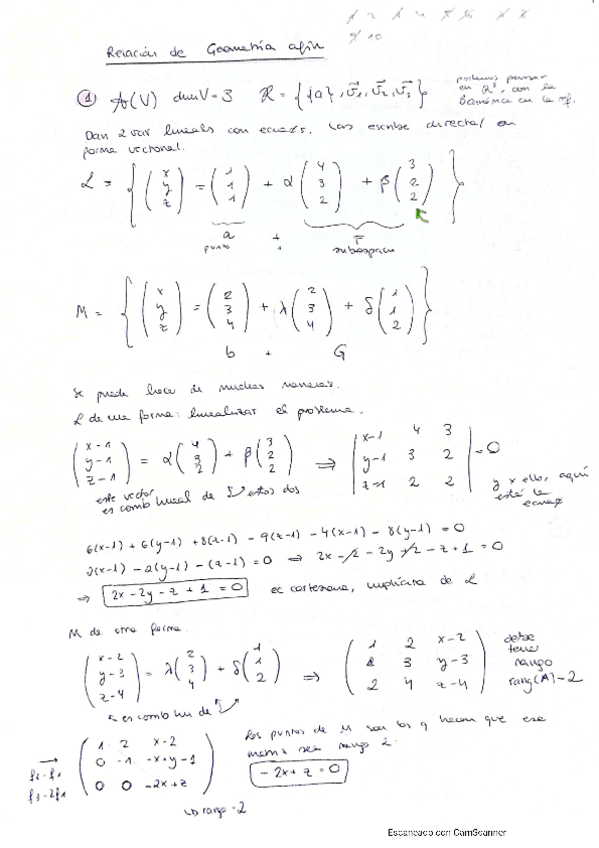 Relación de Geometría afín
① A(V) dim V=3 R = { {a}, v⃗1, v⃗2, v⃗3 }
podemos pensar
en R³, con la
B canónica en la ref.
Dan 2 var lineales con ecuac⁰s. Las escribe directa/ en
forma vectorial.
L = { (x y z) = (1 1 1) + α (4 3 2) + β (3 2 2) }
a + F
punto subespacio
M = { (x y z) = (2 3 4) + λ (2 3 4) + δ (1 1 2) }
b + G
Se puede hacer de muchas maneras.
L de una forma: linealizar el problema.
(x-1 y-1 z-1) = α (4 3 2) + β (3 2 2) ⇒ | x-1 4 3 | = 0
| y-1 3 2 |
| z-1 2 2 |
este vector
es comb lineal de estos dos
y x ello, aquí
está la
ecuac⁰
6(x-1) + 6(y-1) + 8(z-1) - 9(z-1) - 4(x-1) - 8(y-1) = 0
2(x-1) - 2(y-1) - (z-1) = 0 ⇒ 2x - 2 - 2y + 2 - z + 1 = 0
⇒ 2x - 2y - z + 1 = 0 ec cartesiana, implícita de L
M de otra forma.
(x-2 y-3 z-4) = λ (2 3 4) + δ (1 1 2) ⇒ ( 1 2 x-2
1 3 y-3
2 4 z-4 )
debe
tener
rango
rang(A)=2
es comb lin de
f2-f1
f3-2f1
( 1 2 x-2
0 -1 -x+y-1
0 0 -2x+z )
rango=2
Los puntos de M son los q hacen que esa
matriz sea rango 2:
-2x + z = 0
Escaneado con CamScanner